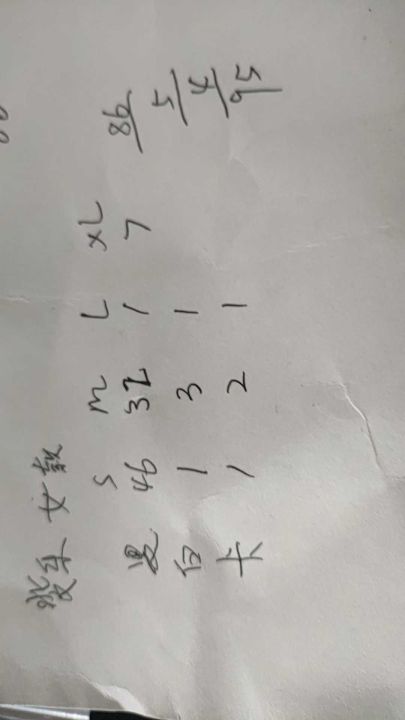 女款
S M L XL
黑 46 32 1 7 86
白 1 3 1 5
卡 1 2 1 4
95